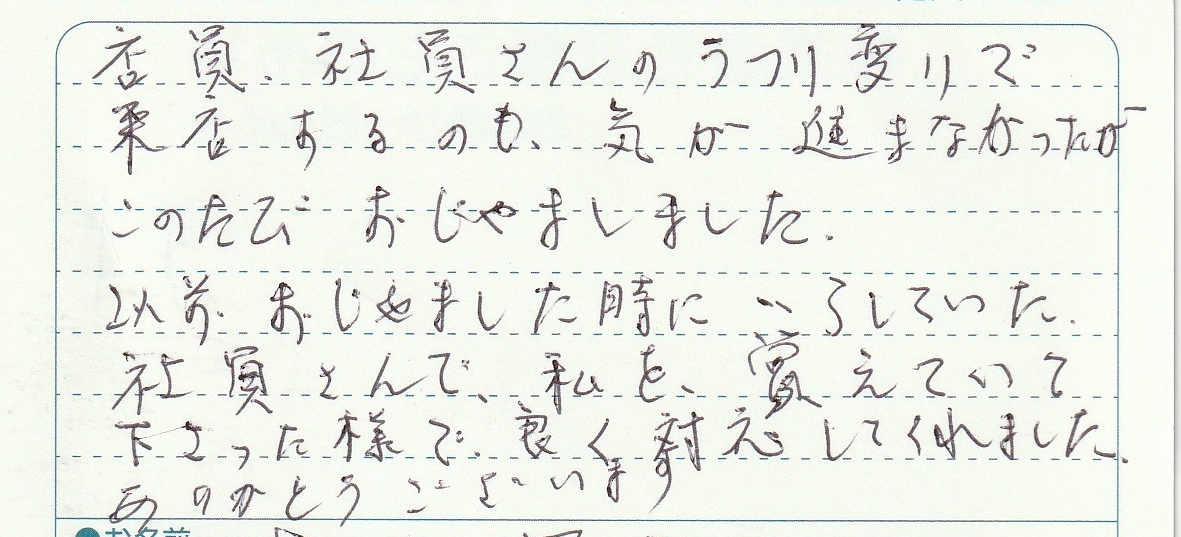 店員、社員さんのうつり変りで
来店するのも、気が進まなかったが
このたび おじゃましました.
以前、おじゃました時に いらしていた.
社員さんで、私を、覚えていて
下さった様で、良く対応してくれました.
ありがとうございます
●お名前